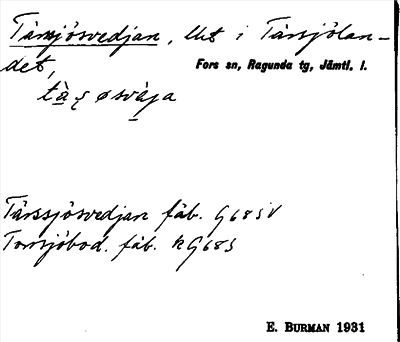 Tårsjösvedjan, Ust i Tårsjölan-
det, Fors sn, Ragunda tg, Jämtl. l.
Tårssjösvedjan fäb. G68SV
Torrsjöbod. fäb. R G68S
E. BURMAN 1931